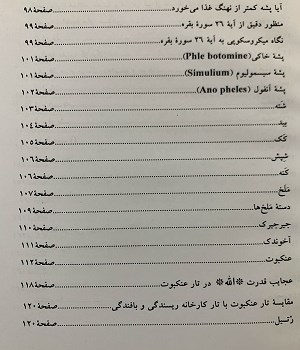 آیا پشه کمتر از نهنگ غذا می‌خورد.....صفحهٔ ۹۸
منظور دقیق از آیهٔ ۲۶ سورهٔ بقره.....صفحهٔ ۹۹
نگاه میکروسکوپی به آیهٔ ۲۶ سورهٔ بقره.....صفحهٔ ۹۹
پشهٔ خاکی (Phle botomine).....صفحهٔ ۱۰۱
پشهٔ سیسمولیوم (Simulium).....صفحهٔ ۱۰۱
پشهٔ آنفول (Ano pheles).....صفحهٔ ۱۰۲
.....صفحهٔ ۱۰۳
بید.....صفحهٔ ۱۰۴
کَک.....صفحهٔ ۱۰۵
شپش.....صفحهٔ ۱۰۶
کَنه.....صفحهٔ ۱۰۶
مَلَخ.....صفحهٔ ۱۰۷
دستهٔ مَلَخ‌ها.....صفحهٔ ۱۰۹
جیرجیرک.....صفحهٔ ۱۱۰
آخوندک.....صفحهٔ ۱۱۱
عنکبوت.....صفحهٔ ۱۱۲
عجایب قدرت «الله» در تار عنکبوت.....صفحهٔ ۱۱۸
مقایسهٔ تار عنکبوت با تار کارخانه ریسندگی و بافندگی.....صفحهٔ ۱۲۰
رُتیل.....صفحهٔ ۱۲۰